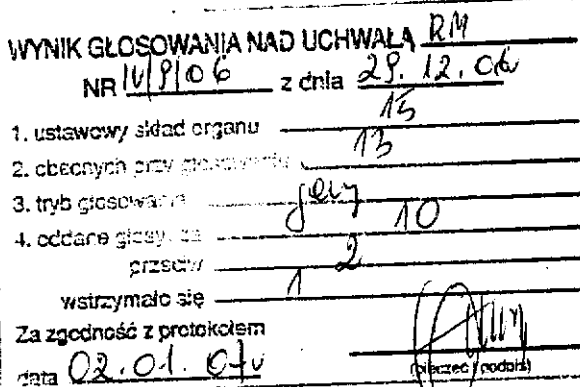 WYNIK GŁOSOWANIA NAD UCHWAŁĄ RM
NR IV/9/06 z dnia 29.12.06r
1. ustawowy skład organu 15
2. obecnych przy głosowaniu 13
3. tryb głosowania jawny
4. oddane głosy: za 10
przeciw 2
wstrzymało się 1
Za zgodność z protokołem
data 02.01.07r
(pieczęć i podpis)